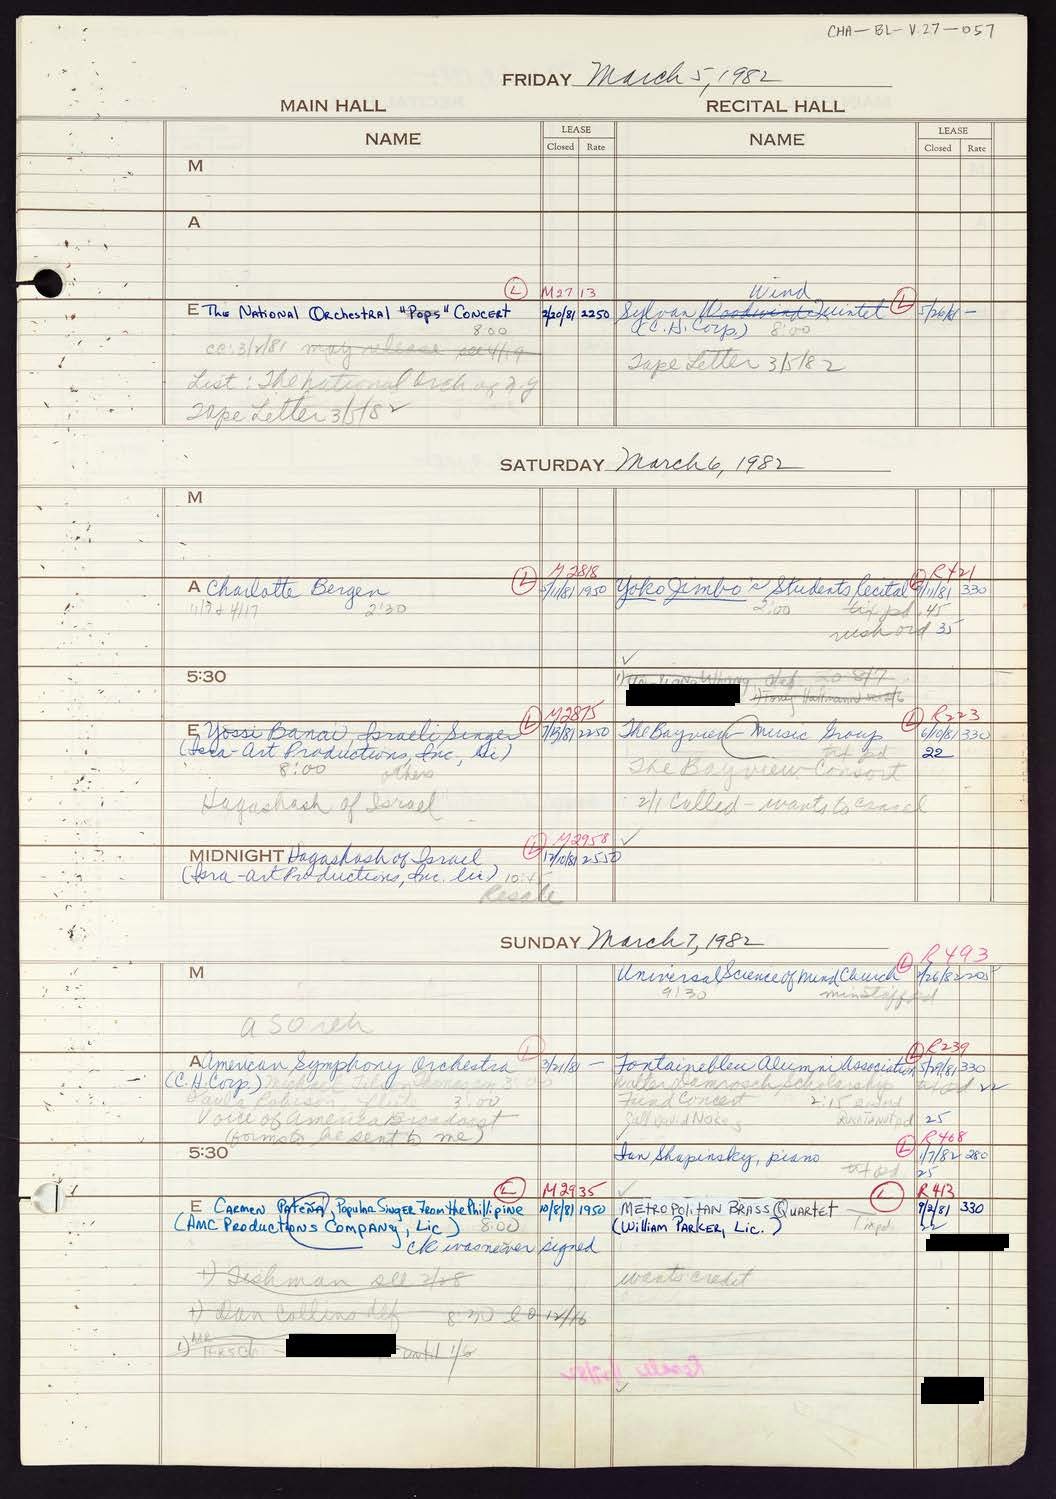 CHA-BL-V.27-057
FRIDAY March 5, 1982
MAIN HALL RECITAL HALL
NAME LEASE Closed Rate NAME LEASE Closed Rate
M
A
Ⓛ M2713 Wind Ⓛ
E The National Orchestral "Pops" Concert 2/20/81 2250 Sylvan Woodwind Quintet 5/26/81 -
8:00 (C.H. Corp.) 8:00
cc: 3/2/81 may release see 4/19
Tape Letter 3/5/82
List: The national Orch
Tape Letter 3/5/82
SATURDAY March 6, 1982
M
Ⓛ M2818 Ⓛ R421
A Charlotte Bergen 1950 Yoko Jimbo's Students Recital 9/11/81 330
11/7 & 4/17 2:30 2:00 tix pd. 45
rush ord 35
5:30
Ⓛ M2875 Ⓛ R223
E Yossi Banai, Israeli Singer 7/13/81 2250 The Bayview Music Group 6/10/81 330
(Isra-Art Productions, Inc., Lic) tix pd 22
8:00 others The Bayview Consort
Hagashash of Israel 2/1 Called - wants to cancel
Ⓛ M2958
MIDNIGHT Hagashash of Israel 12/10/81 2550
(Isra-Art Productions, Inc. Lic) 10:45
Resale
SUNDAY March 7, 1982
Ⓛ R493
M Universal Science of Mind Church 2/26/82 205
9:30 min staff pd
ASO reh
Ⓛ Ⓛ R239
A American Symphony Orchestra 3/21/81 - Fontainebleu Alumni Association 5/29/81 330
(C.H. Corp.) Walter Damrosch Scholarship tix pd 22
Paula Robison Flute 3:00 Fund Concert 2:15
Voice of America Broadcast 25
(forms to be sent to me)
Ⓛ R468
5:30 Ian Shapinsky, piano 1/7/82 280
tix pd 25
Ⓛ M2935 Ⓛ R413
E Carmen Pateña, Popular Singer from the Phillipine 10/8/81 1950 Metropolitan Brass Quartet 9/2/81 330
(AMC Productions Company, Lic) 8:00 (William Parker, Lic.) 22
ck was never signed
1) Fishman see 2/28 wants credit
1) Dan Collins def 8:30 12/16
1) until 1/6